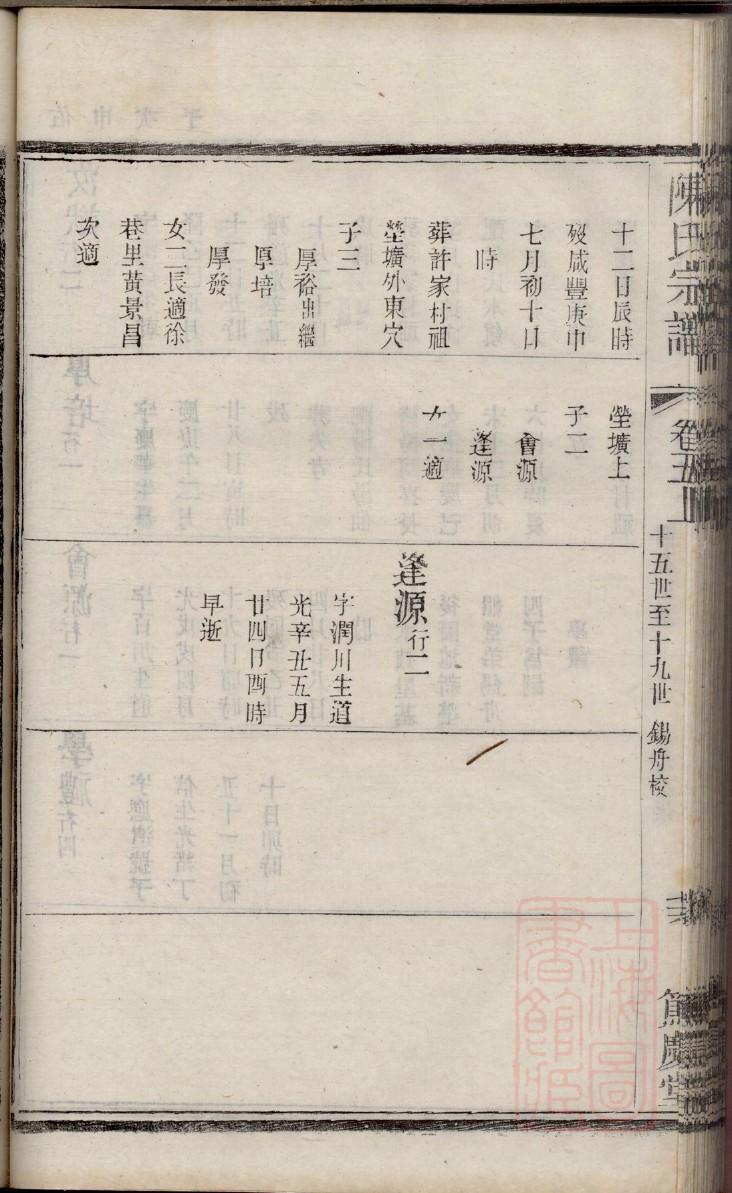 陳氏宗譜
卷五上
十五世至十九世 錫舟校
篤慶堂
十二日辰時
歿咸豐庚申
七月初十日
時
葬許家村祖
塋壙外東穴
子三
厚裕出繼
厚培
厚發
女二長適徐
巷里黃景昌
次適
塋壙上
子二
會源
逢源
女一適
逢源行二
字潤川生道
光辛丑五月
廿四日酉時
早逝
上海圖書館藏